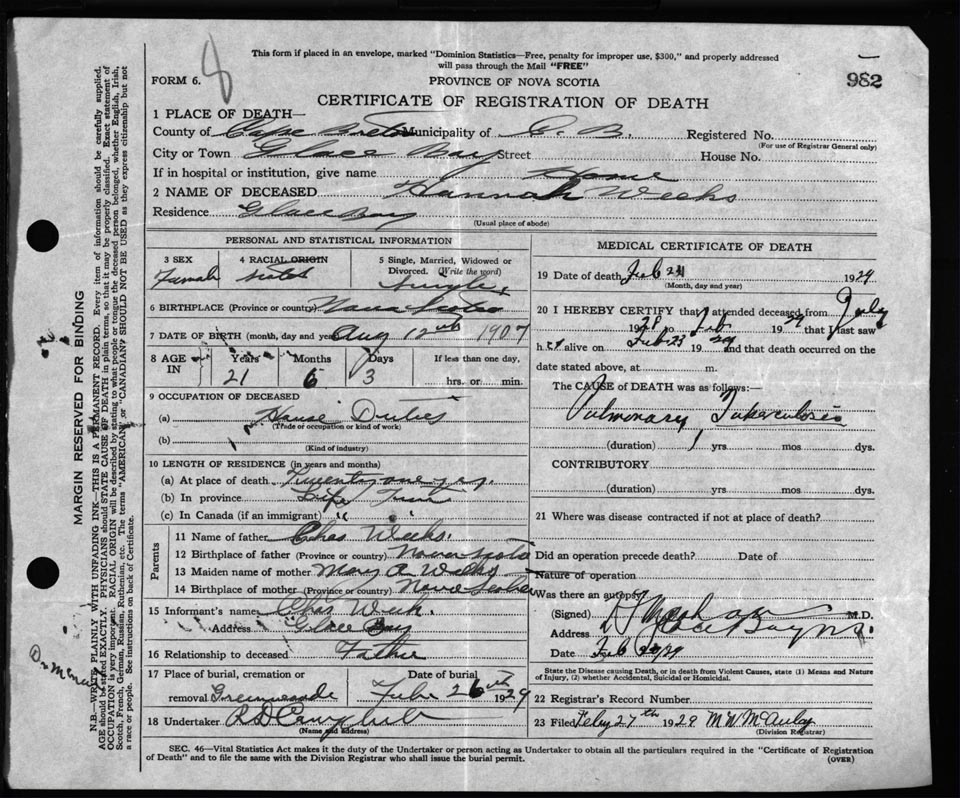 8
This form if placed in an envelope, marked "Dominion Statistics—Free, penalty for improper use, $300," and properly addressed
will pass through the Mail "FREE"
FORM 6.
PROVINCE OF NOVA SCOTIA
982
CERTIFICATE OF REGISTRATION OF DEATH
1 PLACE OF DEATH—
County of Cape Breton Municipality of C. B. Registered No.
(For use of Registrar General only)
City or Town Glace Bay Street House No.
If in hospital or institution, give name Home
2 NAME OF DECEASED Hannah Weeks
Residence Glace Bay
(Usual place of abode)
PERSONAL AND STATISTICAL INFORMATION
3 SEX 4 RACIAL ORIGIN 5 Single, Married, Widowed or
Divorced. (Write the word)
Female Single
6 BIRTHPLACE (Province or country) Nova Scotia
7 DATE OF BIRTH (month, day and year) Aug 12th 1907
8 AGE IN Years Months Days If less than one day,
21 6 3 hrs. or min.
9 OCCUPATION OF DECEASED
(a) House Duties
(Trade or occupation or kind of work)
(b)
(Kind of industry)
10 LENGTH OF RESIDENCE (in years and months)
(a) At place of death Twenty one yrs.
(b) In province Life Time
(c) In Canada (if an immigrant) " "
Parents
11 Name of father Chas Weeks.
12 Birthplace of father (Province or country) Nova Scotia
13 Maiden name of mother Mary A. Weeks
14 Birthplace of mother (Province or country) Nova Scotia
15 Informant's name Chas Week.
Address Glace Bay
16 Relationship to deceased Father
17 Place of burial, cremation or Date of burial
removal Greenwoode Febr 26th 1929
18 Undertaker R D Campbell
(Name and address)
MEDICAL CERTIFICATE OF DEATH
19 Date of death Feb 24 1929
(Month, day and year)
20 I HEREBY CERTIFY that I attended deceased from July
1928 to Feb 1929 that I last saw
her alive on Feb 23 1929 and that death occurred on the
date stated above, at m.
The CAUSE of DEATH was as follows:
Pulmonary Tuberculosis
(duration) 1 yrs mos dys.
CONTRIBUTORY
(duration) yrs mos dys.
21 Where was disease contracted if not at place of death?
Did an operation precede death? Date of
Nature of operation
Was there an autopsy?
(Signed) M.D.
Address Glace Bay N.S.
Date Feb 1929
State the Disease causing Death, or in death from Violent Causes, state (1) Means and Nature
of Injury, (2) whether Accidental, Suicidal or Homicidal.
22 Registrar's Record Number
23 Filed Feby 27th 1929 M W McAulay
(Division Registrar)
SEC. 46—Vital Statistics Act makes it the duty of the Undertaker or person acting as Undertaker to obtain all the particulars required in the "Certificate of Registration
of Death" and to file the same with the Division Registrar who shall issue the burial permit.
(OVER)
MARGIN RESERVED FOR BINDING
N.B.—WRITE PLAINLY WITH UNFADING INK—THIS IS A PERMANENT RECORD. Every item of information should be carefully supplied.
AGE should be stated EXACTLY. PHYSICIANS should STATE CAUSE OF DEATH in plain terms, so that it may be properly classified. Exact statement of
OCCUPATION is very important. RACIAL ORIGIN will be described by stating to what people or tongue the deceased person belonged, whether English, Irish,
Scotch, French, German, Russian, Ruthenian, etc. The terms "AMERICAN" or "CANADIAN" SHOULD NOT BE USED as they express citizenship but not
a race or people. See instructions on back of Certificate.